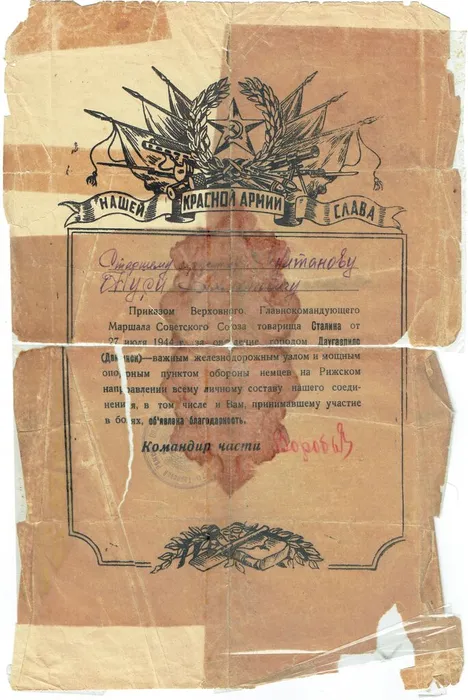 НАШЕЙ КРАСНОЙ АРМИИ СЛАВА
Старшему
Приказом Верховного Главнокомандующего
Маршала Советского Союза товарища Сталина от
27 июля 1944 г. за овладение городом Даугавпилс
(Двинском)—важным железнодорожным узлом и мощным
опорным пунктом обороны немцев на Рижском
направлении всему личному составу нашего соеди-
нения, в том числе и Вам, принимавшему участие
в боях, об'явлена благодарность.
Командир части